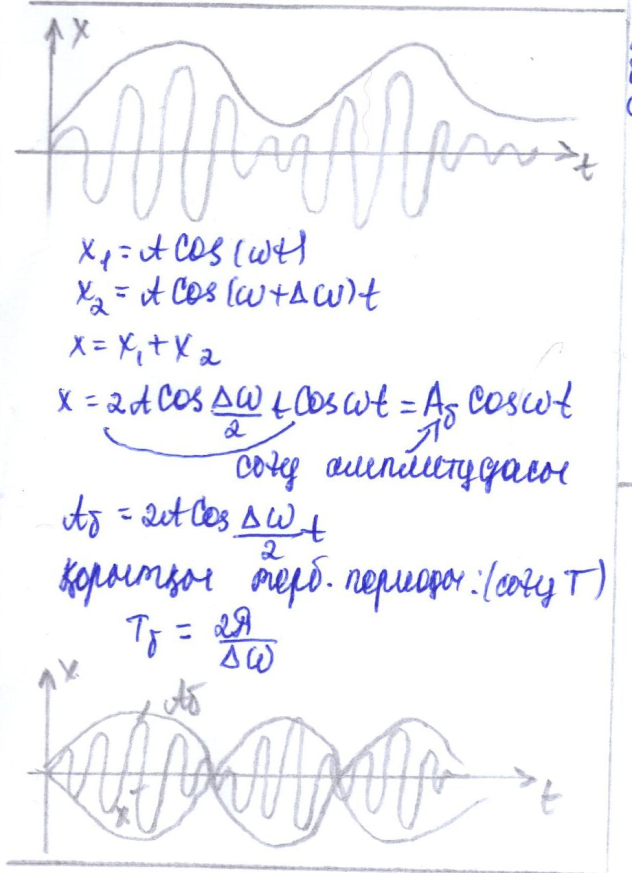 x
t
x₁ = A cos(ωt)
x₂ = A cos(ω+Δω)t
x = x₁ + x₂
x = 2A cos Δω/2 t cos ωt = Aδ cos ωt
соғу амплитудасы
Aδ = 2A cos Δω/2 t
Қорытқы терб. периоды: (соғу T)
Tδ = 2π/Δω
x
Aδ
x
t